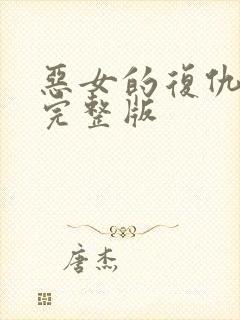 惡女的復仇
完整版
唐杰